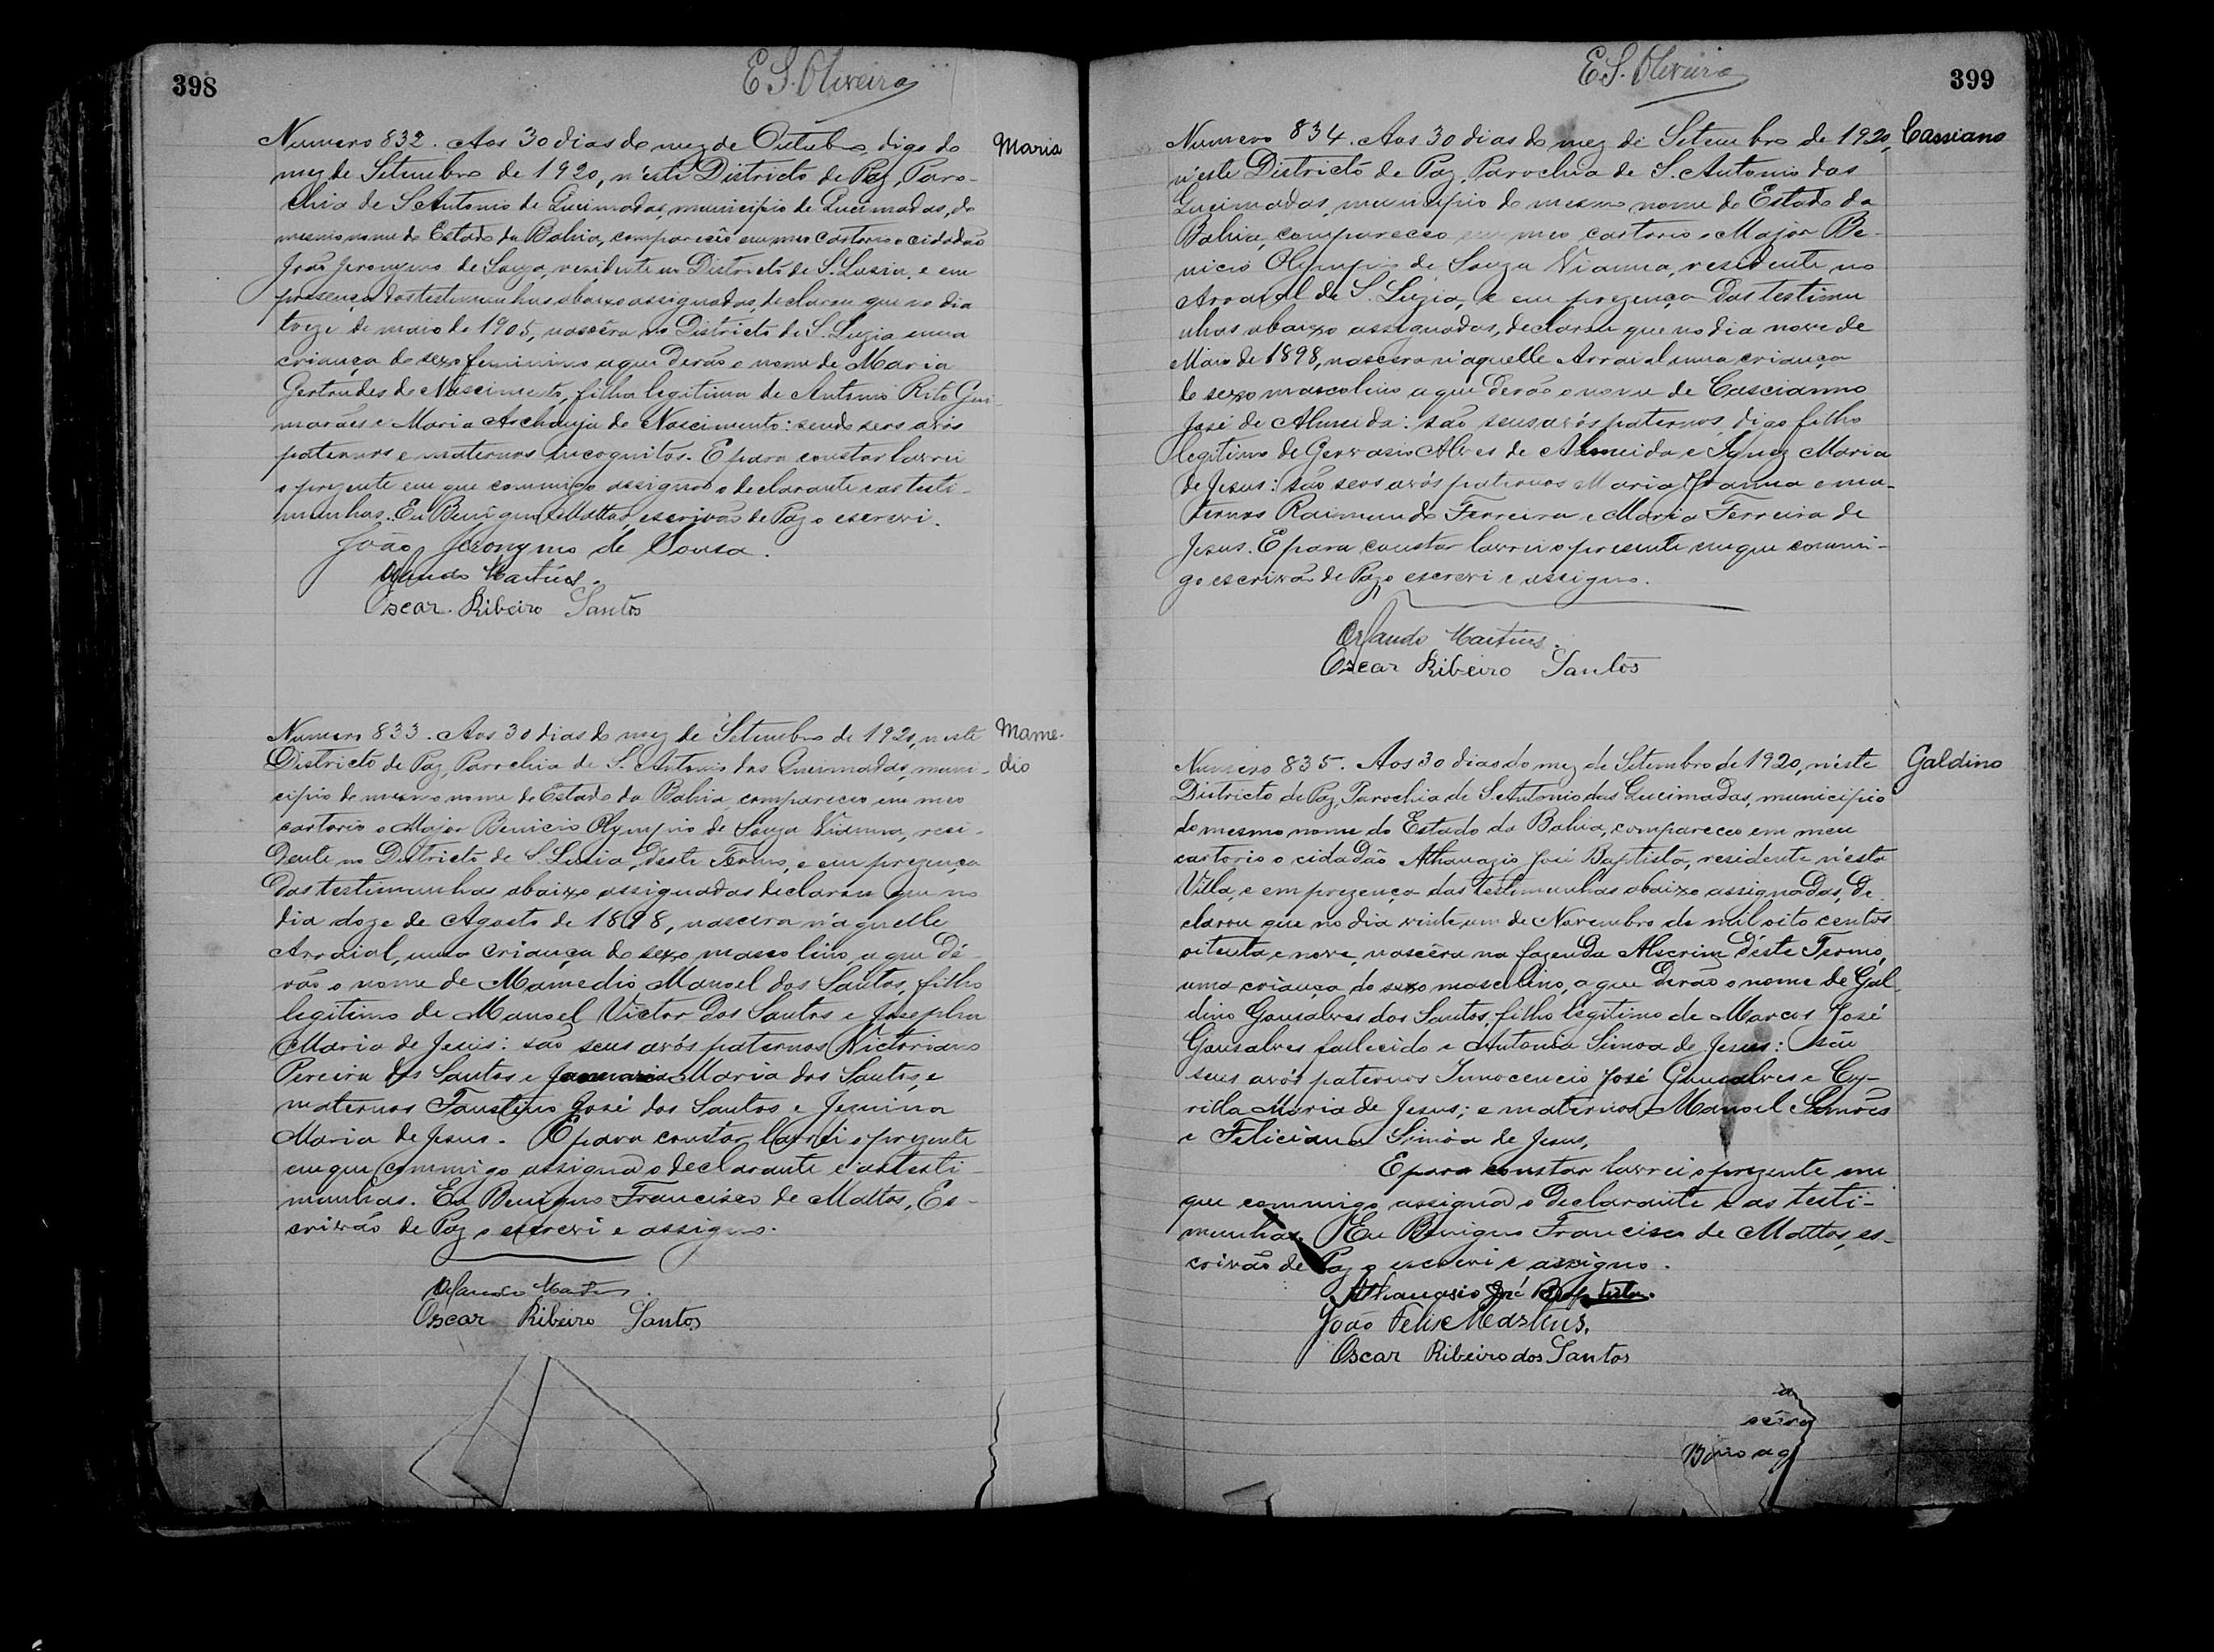 398
E S. Oliveira
Numero 832. Aos 30 dias do mez de Outubro, digo do
mez de Setembro de 1920, n'este Districto de Paz, Paro-
chia de S. Antonio de Queimadas, municipio de Queimadas, do
mesmo nome do Estado da Bahia, compareceo em meo cartorio o cidadão
João Jeronymo de Souza, residente no Districto de S. Lusia, e em
presença das testemunhas abaixo assignadas, declarou que no dia
treze de maio de 1905, nascêra no Districto de S. Luzia uma
criança do sexo feminino a que derão o nome de Maria
Gertrudes do Nascimento, filha legitima de Antonio Rito Gui-
marães e Maria Archanja do Nascimento: sendo seos avós
paternos e maternos incognitos. E para constar lavrei
o prezente em que commigo assignão o declarante e as testi-
munhas. Eu Benigno Mattos, escrivão de Paz o escrevi.
João Jeronymo de Sousa.
Orlando Martins.
Oscar Ribeiro Santos
Maria
Numero 833. Aos 30 dias do mez de Setembro de 1920, n'este
Districto de Paz, Parochia de S. Antonio das Queimadas, muni-
cipio do mesmo nome do Estado da Bahia, compareceo em meo
cartorio o Major Benicio Olympio de Souza Vianna, resi-
dente no Districto de S. Lusia, deste Termo, e em prezença
das testimunhas abaixo assignadas declarou que no
dia doze de Agosto de 1898, nascera n'aquelle
Arraial, uma criança do sexo mascolino, a que dé-
rão o nome de Mamedio Manoel dos Santos, filho
legitimo de Manoel Victor dos Santos e Josepha
Maria de Jesus: são seus avós paternos Victoriano
Pereira dos Santos e Januaria Maria dos Santos, e
maternos Faustino José dos Santos e Jezuina
Maria de Jesus. E para constar lavrei o prezente
em que commigo assignão o declarante e as testi-
munhas. Eu Benigno Francisco de Mattos, Es-
crivão de Paz o escrevi e assigno.
Orlando Martins.
Oscar Ribeiro Santos
Mame-
dio
E S. Oliveira
399
Numero 834. Aos 30 dias do mez de Setembro de 1920,
n'este Districto de Paz, Parochia de S. Antonio das
Queimadas, municipio do mesmo nome do Estado da
Bahia, compareceo em meo cartorio o Major Be-
nicio Olympio de Souza Vianna, residente no
Arraial de S. Luzia, e em prezença das testimu
nhas abaixo assignadas, declarou que no dia nove de
Maio de 1898, nascera n'aquelle Arraial uma criança
do sexo mascolino a que derão o nome de Cascianno
José de Almeida: são seus avós paternos, digo filho
legitimo de Gervasio Alves de Almeida e Ignez Maria
de Jesus: são seos avós paternos Maria Joanna e ma-
ternos Raimundo Ferreira e Maria Ferreira de
Jesus. E para constar lavrei o presente em que commi-
go escrivão de Paz o escrevi e assigno.
Orlando Martins.
Oscar Ribeiro Santos
Cassiano
Numero 835. Aos 30 dias do mez de Setembro de 1920, n'éste
Districto de Paz, Parochia de S. Antonio das Queimadas, municipio
do mesmo nome do Estado da Bahia, compareceo em meu
cartorio o cidadão Athanazio José Baptista, residente n'esta
Villa, e em prezença das testimunhas abaixo assignadas, de
clarou que no dia vinte um de Novembro de mil oito centos
oitenta e nove, nascêra na fazenda Alecrim d'éste Termo,
uma criança do sexo masculino, a que derão o nome de Gal
dino Gonsalves dos Santos, filho legitimo de Marcos José
Gonsalves fallecido e Antonia Simoa de Jesus: são
seus avós paternos Innocencio José Gonsalves e Cy-
rilla Maria de Jesus; e maternos Manoel Simões
e Feliciana Simôa de Jesus,
E para constar lavrei o prezente em
que commigo assignão o declarante e as testi-
munhas. Eu Benigno Francisco de Mattos, es-
crivão de Paz o escrevi e assigno.
Athanasio José Baptista.
João Felix Martins.
Oscar Ribeiro dos Santos
Galdino